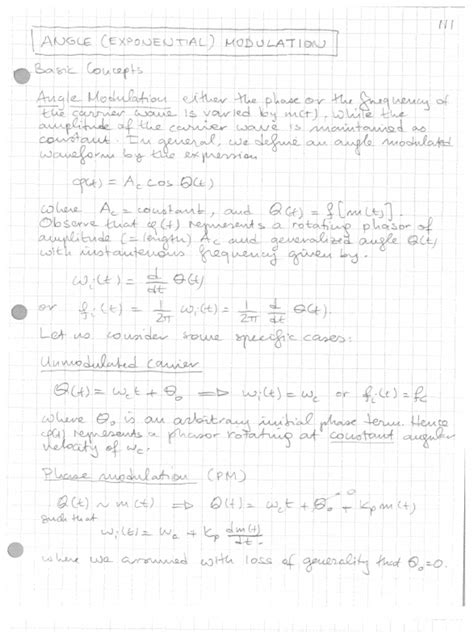 111
ANGLE (EXPONENTIAL) MODULATION
Basic Concepts
Angle Modulation either the phase or the frequency of
the carrier wave is varied by m(t), while the
amplitude of the carrier wave is maintained as
constant. In general, we define an angle modulated
waveform by the expression
φ(t) = Ac cos Θ(t)
where Ac = constant, and Θ(t) = f[m(t)].
Observe that φ(t) represents a rotating phasor of
amplitude (= length) Ac and generalized angle Θ(t)
with instantenous frequency given by.
ωi(t) = d/dt Θ(t)
or fi(t) = 1/2π ωi(t) = 1/2π d/dt Θ(t).
Let us consider some specific cases:
Unmodulated carrier
Θ(t) = ωct + Θo ⇒ ωi(t) = ωc or fi(t) = fc
where Θo is an arbitrary initial phase term. Hence
φ(t) represents a phasor rotating at constant angular
velocity of ωc.
Phase modulation (PM)
Θ(t) ~ m(t) ⇒ Θ(t) = ωct + Θo + kp m(t)
such that
ωi(t) = ωc + kp dm(t)/dt.
where we assumed with loss of generality that Θo=0.